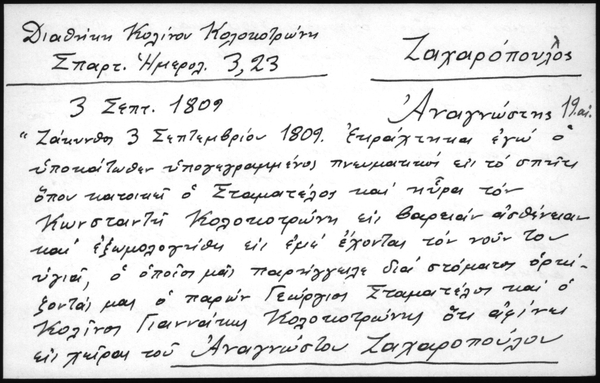 Διαθήκη Κολίνου Κολοκοτρώνη
Σπαρτ. Ἡμερολ. 3, 23
Ζαχαρόπουλος
3 Σεπτ. 1809
Ἀναγνώστης 19 αἰ.
"Ζάκυνθος 3 Σεπτεμβρίου 1809. Ἐκράχτηκα ἐγώ ὁ
ὑποκάτωθεν ὑπογεγραμμένος πνευματικός εἰς τό σπήτι
ὅπου κατοικεῖ ὁ Σταματέλος καί ηὗρα τόν
Κωνσταντῆ Κολοκοτρώνη εἰς βαρειάν ἀσθένειαν
καί ἐξωμολογήθη εἰς ἐμέ ἔχοντας τόν νοῦν του
ὑγιᾶ, ὁ ὁποῖος μᾶς παρήγγειλε διά στόματος ὁρκί-
ζοντάς μας ὁ παρών Γεώργιος Σταματέλος καί ὁ
Κολῖνος Γιαννάκης Κολοκοτρώνης ὅτι ἀφίνει
εἰς χεῖρας τοῦ Ἀναγνώστου Ζαχαροπούλου